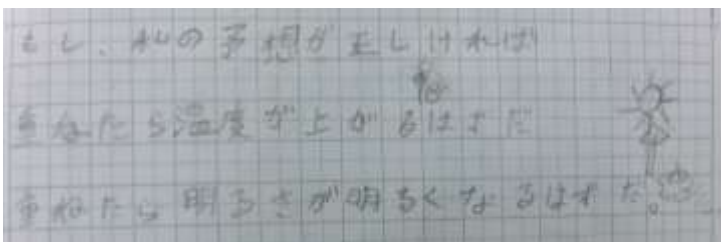 もし、私の予想が正しければ
重ねたら温度が上がるはずだ
重ねたら明るさが明るくなるはずだ。